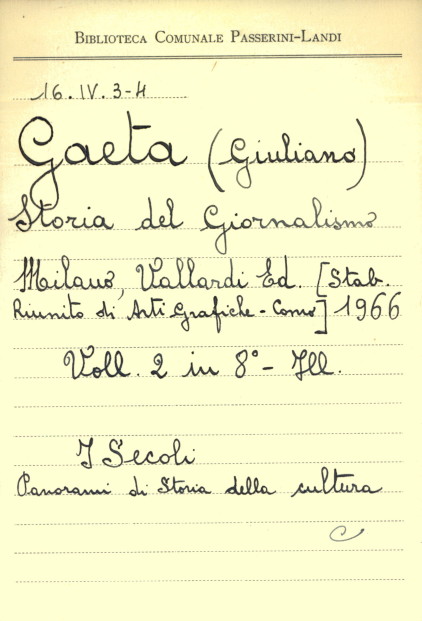 BIBLIOTECA COMUNALE PASSERINI-LANDI
16.IV.3-4
Gaeta (Giuliano)
Storia del Giornalismo
Milano, Vallardi Ed. [Stab.
Riunito di Arti Grafiche - Como] 1966
Voll. 2 in 8° - Ill.
I Secoli
Panorami di Storia della cultura
C